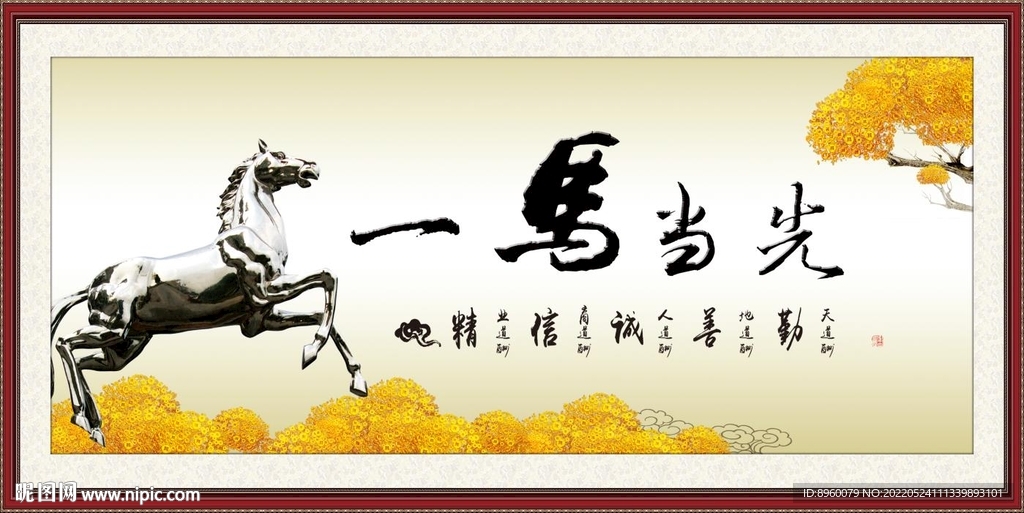 一马当先
天道酬勤
地道酬善
人道酬诚
商道酬信
业道酬精
昵图网 www.nipic.com
ID:8960079 NO:20220524111339893101